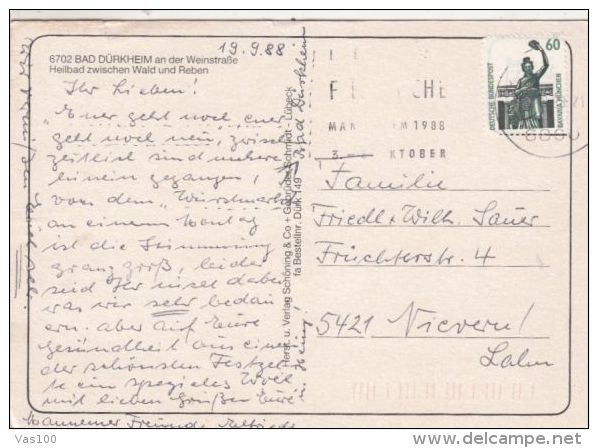 19.9.88
6702 BAD DÜRKHEIM an der Weinstraße
Heilbad zwischen Wald und Reben
Ihr Lieben!
"Einer geht noch einer
geht noch rein", zwisch
zeitlich sind mehrere
hinein gegangen,
von dem "Wurstmarkt
an einem Montag
ist die Stimmung
ganz groß, leider
seid Ihr nicht dabei
was wir sehr bedau
ern. aber auf Eure
Gesundheit aus einem
der schönsten Festzel
te ein spezielles Wohl
mit lieben Grüßen Eure
Mannemer Freunde
Bad Dürkheim
Herst. u. Verlag Schöning & Co + Gebrüder Schmidt · Lübeck
fa Bestellnr. Dürk 149
MAN EIM 1988
3. KTOBER
60
DEUTSCHE BUNDESPOST
BAVARIA MÜNCHEN
Familie
Friedl + Wilh. Sauer
Früchterstr. 4
5421 Nievern/
Lahn
Vas100
www.delcampe.net